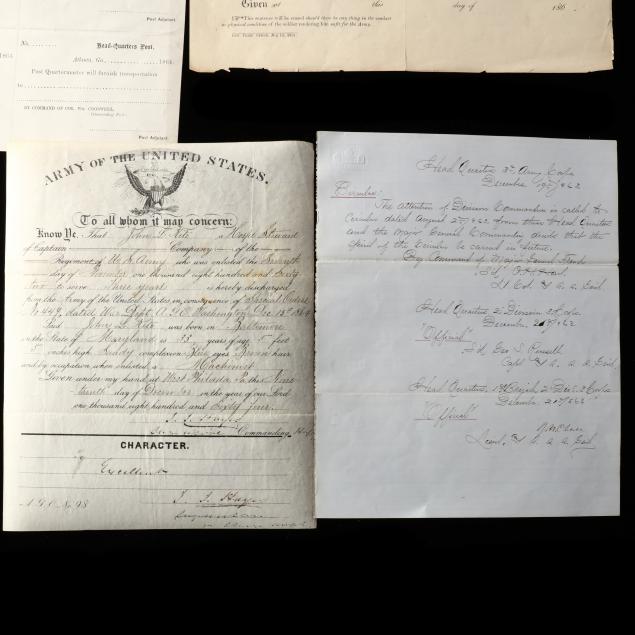 Post Adjutant.
No.
Head-Quarters Post,
Athens, Ga. 186
Post Quartermaster will furnish transportation
to
BY COMMAND OF COL.
Post Adjutant.
1864
Given at this day of 186 .
This sentence will be erased should there be any thing in the conduct
or physical condition of the soldier rendering him unfit for the Army.
ARMY OF THE UNITED STATES.
To all whom it may concern:
Know Ye, That John L. a Hosp. Steward
of Captain Company of the
Regiment of U.S. Army who was enlisted the Seventh
day of one thousand eight hundred and Sixty
two to serve Three years is hereby discharged
from the Army of the United States, in consequence of Special Orders
No 449, dated War Dept. A.G.O. Washington, Dec. 15th 1864
Said John L. was born in Baltimore
in the State of Maryland is 33 years of age 5 feet
5 inches high Ruddy complexion Blue eyes Brown hair
and by occupation when enlisted a Machinist
Given under my hand at West Philada Pa this Nine
teenth day of December in the year of our Lord
one thousand eight hundred and Sixty four.
Commanding
CHARACTER.
Excellent
A.G.O. No. 98
Head Quarters 3d Army Corps
December 19th/62
Circular
The attention of Division Commanders is called to
Circular dated August 2nd/62 from these Head Quarters
and the Major General Commanding directs that the
spirit of the Circular be carried in future.
By Command of Major General
Lt Col. & A. A. Genl.
Head Quarters 2d Division 3d Corps
December 20th/62
"Official"
Sd. Geo. S. Russell
Capt & A. A. A. Genl
Head Quarters 1st Brigade 2d Div. 3d Corps
December 20th/62
"Official"
Lieut. & A. A. A. Genl.